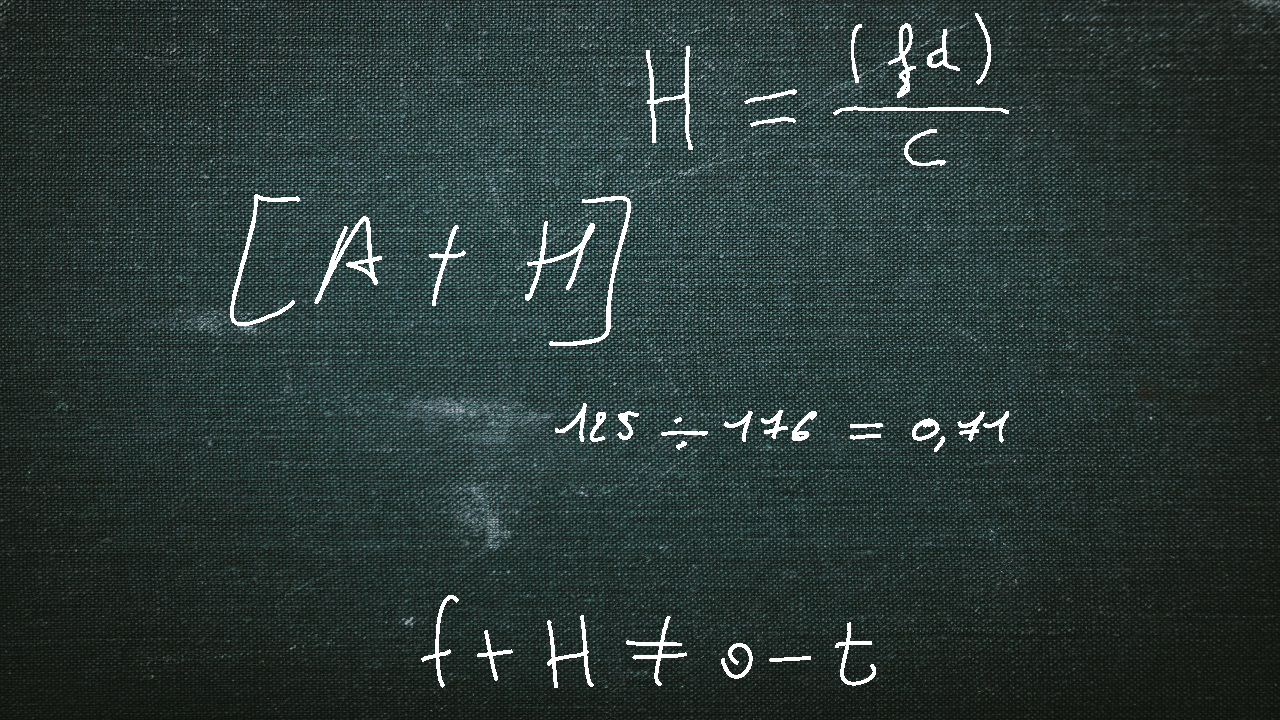 H = (fd) / c
[A + H]
125 ÷ 176 = 0,71
f + H ≠ o - t